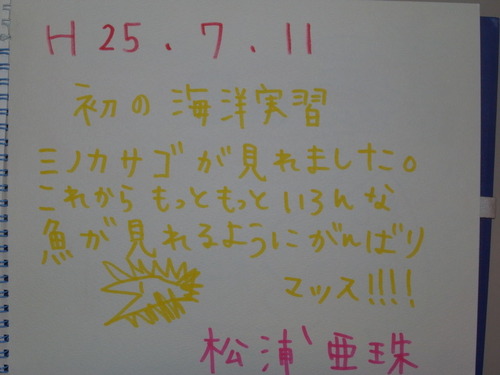 H 25.7.11
初の海洋実習
ミノカサゴが見れました。
これからもっともっといろんな
魚が見れるようにがんばり
マッス!!!!
松浦亜珠